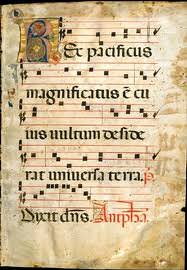 Rex pacificus
magnificatus ẽ cu
ius vultum deside
rat universa terra. p̃
Dixit dñs. Antipha